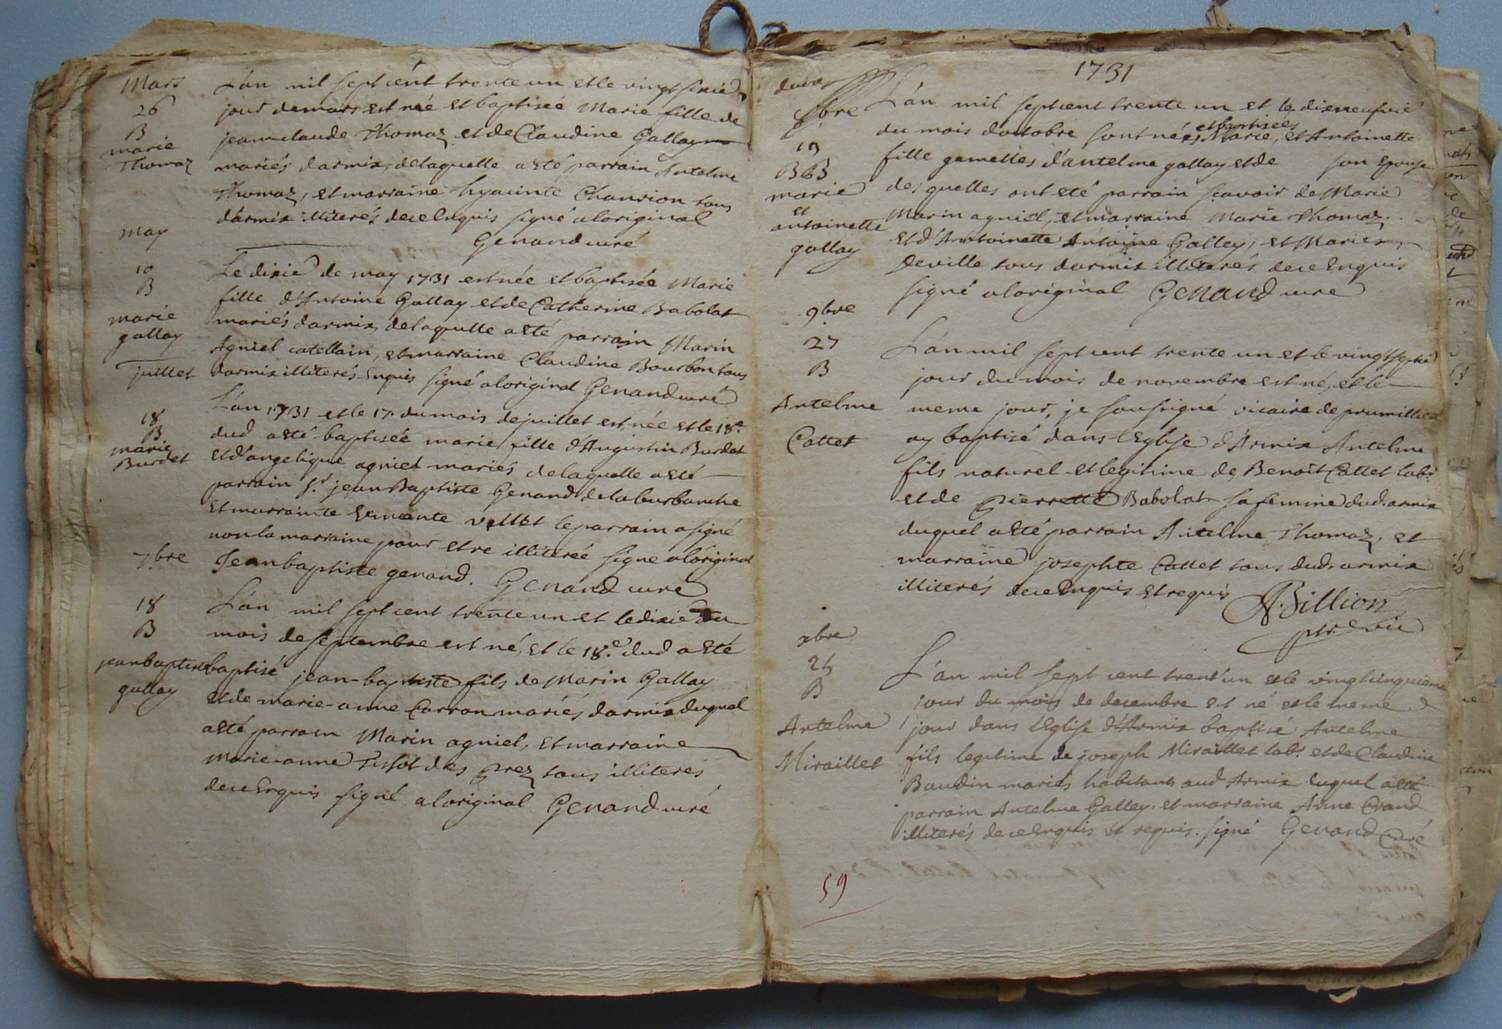 Mars
26
B
marie
Thomaz
L'an mil sept cent trente un et le vingt sixié
jour de mars est née et baptisée Marie fille de
jean claude Thomaz et de Claudine Gallay
mariés darmix, de laquelle a eté parrain Antelme
Thomaz, et marraine hyacinte Chanrion tous
darmix illiterés de ce Enquis signé a loriginal
Genand curé
may
10
B
marie
gallay
Le dixié de may 1731 est née et baptisée Marie
fille d'Antoine Gallay et de Catherine Babolat
mariés darmix, de laquelle a eté parrain Marin
Agniel catellain, et marraine Claudine Bourbon tous
darmix illiterés Enquis signé a loriginal Genand curé
juillet
18
B
marie
Burdet
L'an 1731 et le 17 du mois de juillet est née et le 18e
dud a eté baptisée marie fille d'Augustin Burdet
et d'angelique agniel mariés de laquelle a eté
parrain Sr jean Baptiste Genand de la burbanche
et marraine vellet le parrain a signé
non la marraine pour etre illiterée signé a loriginal
Jean baptiste genand. Genand curé
7bre
18
B
jean baptiste
gallay
L'an mil sept cent trente un et le dixié du
mois de septembre est né, et le 18e dud a eté
baptisé jean-baptiste fils de Marin Gallay
et de marie-anne Carron mariés darmix duquel
a eté parrain Marin agniel, et marraine
Marie-anne Tissot des prez tous illiteres
de ce Enquis signé a loriginal Genand curé
1731
dud
8bre
19
B B
marie
et
antoinette
gallay
L'an mil sept cent trente un et le dixneufvié
du mois doctobre sont nées, et baptisées Marie, et Antoinette
fille gemelles d'antelme gallay et de son Epouse
desquelles ont eté parrain scavoir de Marie
Marin agniel, et marraine Marie Thomaz.
et d'Antoinette Antoine Galley, et Marie
deville tous darmix illiterés de ce Enquis
signé a loriginal Genand curé
9bre
27
B
Antelme
Cattet
L'an mil sept cent trente un et le vingt septié
jour du mois de novembre est né, et le
meme jour, je soussigné vicaire de prumillieu
ay baptisé dans l'Eglise d'Armix Antelme
fils naturel et legitime de Benoit Cattet labr
et de Pierrette Babolat sa femme dud. armix
duquel a eté parrain Antelme Thomaz, et
marraine josephte Cattet tous dud. armix
illiterés de ce Enquis et requis
Billion
ptre vic
xbre
25
B
Antelme
Miraillet
L'an mil sept cent trent'un et le vingtcinquieme
jour du mois de decembre est né et le meme
jour dans l'Eglise d'Armix baptisé Antelme
fils legitime de joseph Miraillet labr. et de Claudine
Baudin mariés habitants aud Armix duquel a eté
parrain Antelme Galley. et marraine Anne
illiterés de ce Enquis et requis. signé Genand Curé
59